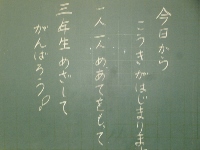 今日から
こうきがはじまりま
一人一人めあてをもって
三年生めざして
がんばろう